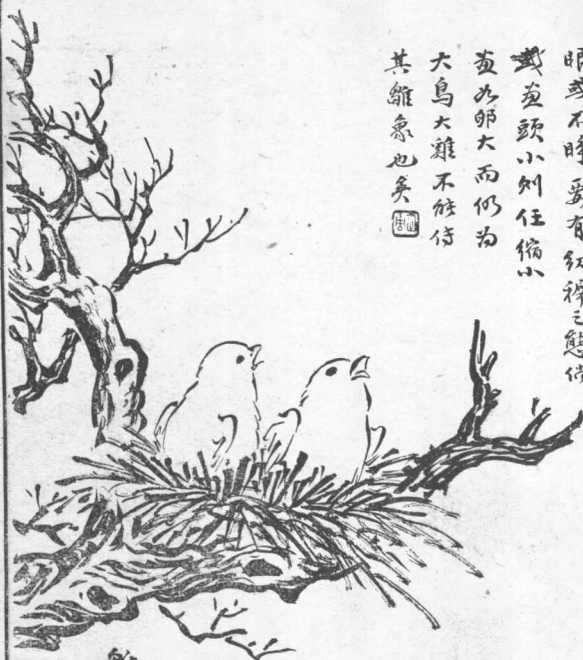 眼或不睜要有幼稚之態倘
畫頭小則任縮小
畫如卵大而仍為
大鳥大雞不能
其雛象也